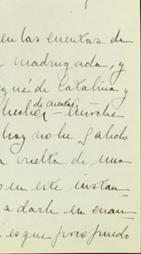 en las cuentas de
madrugada, y
que de Catalina y
de cuentos
hechos - Noche
hoy no he salido
a vuelta de una
o en este instan-
a darle en cuan-
es que poco puedo